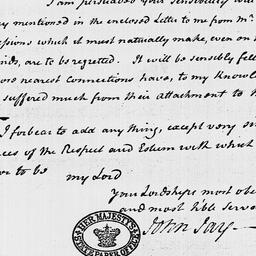 I am persuaded your Sensibility will
ry mentioned in the enclosed Letter to me from Mr.
essions which it must naturally make, even on
nds, are to be regretted. It will be sensibly felt
ore nearest Connections have, to my Knowl
suffered much from their attachment to
I forbear to add any thing, except very
ces of the Respect and Esteem with which
or to be
my Lord
Your Lordships most obe
and most hble Serva
John Jay
HER MAJESTY'S
STATE PAPER OFFICE